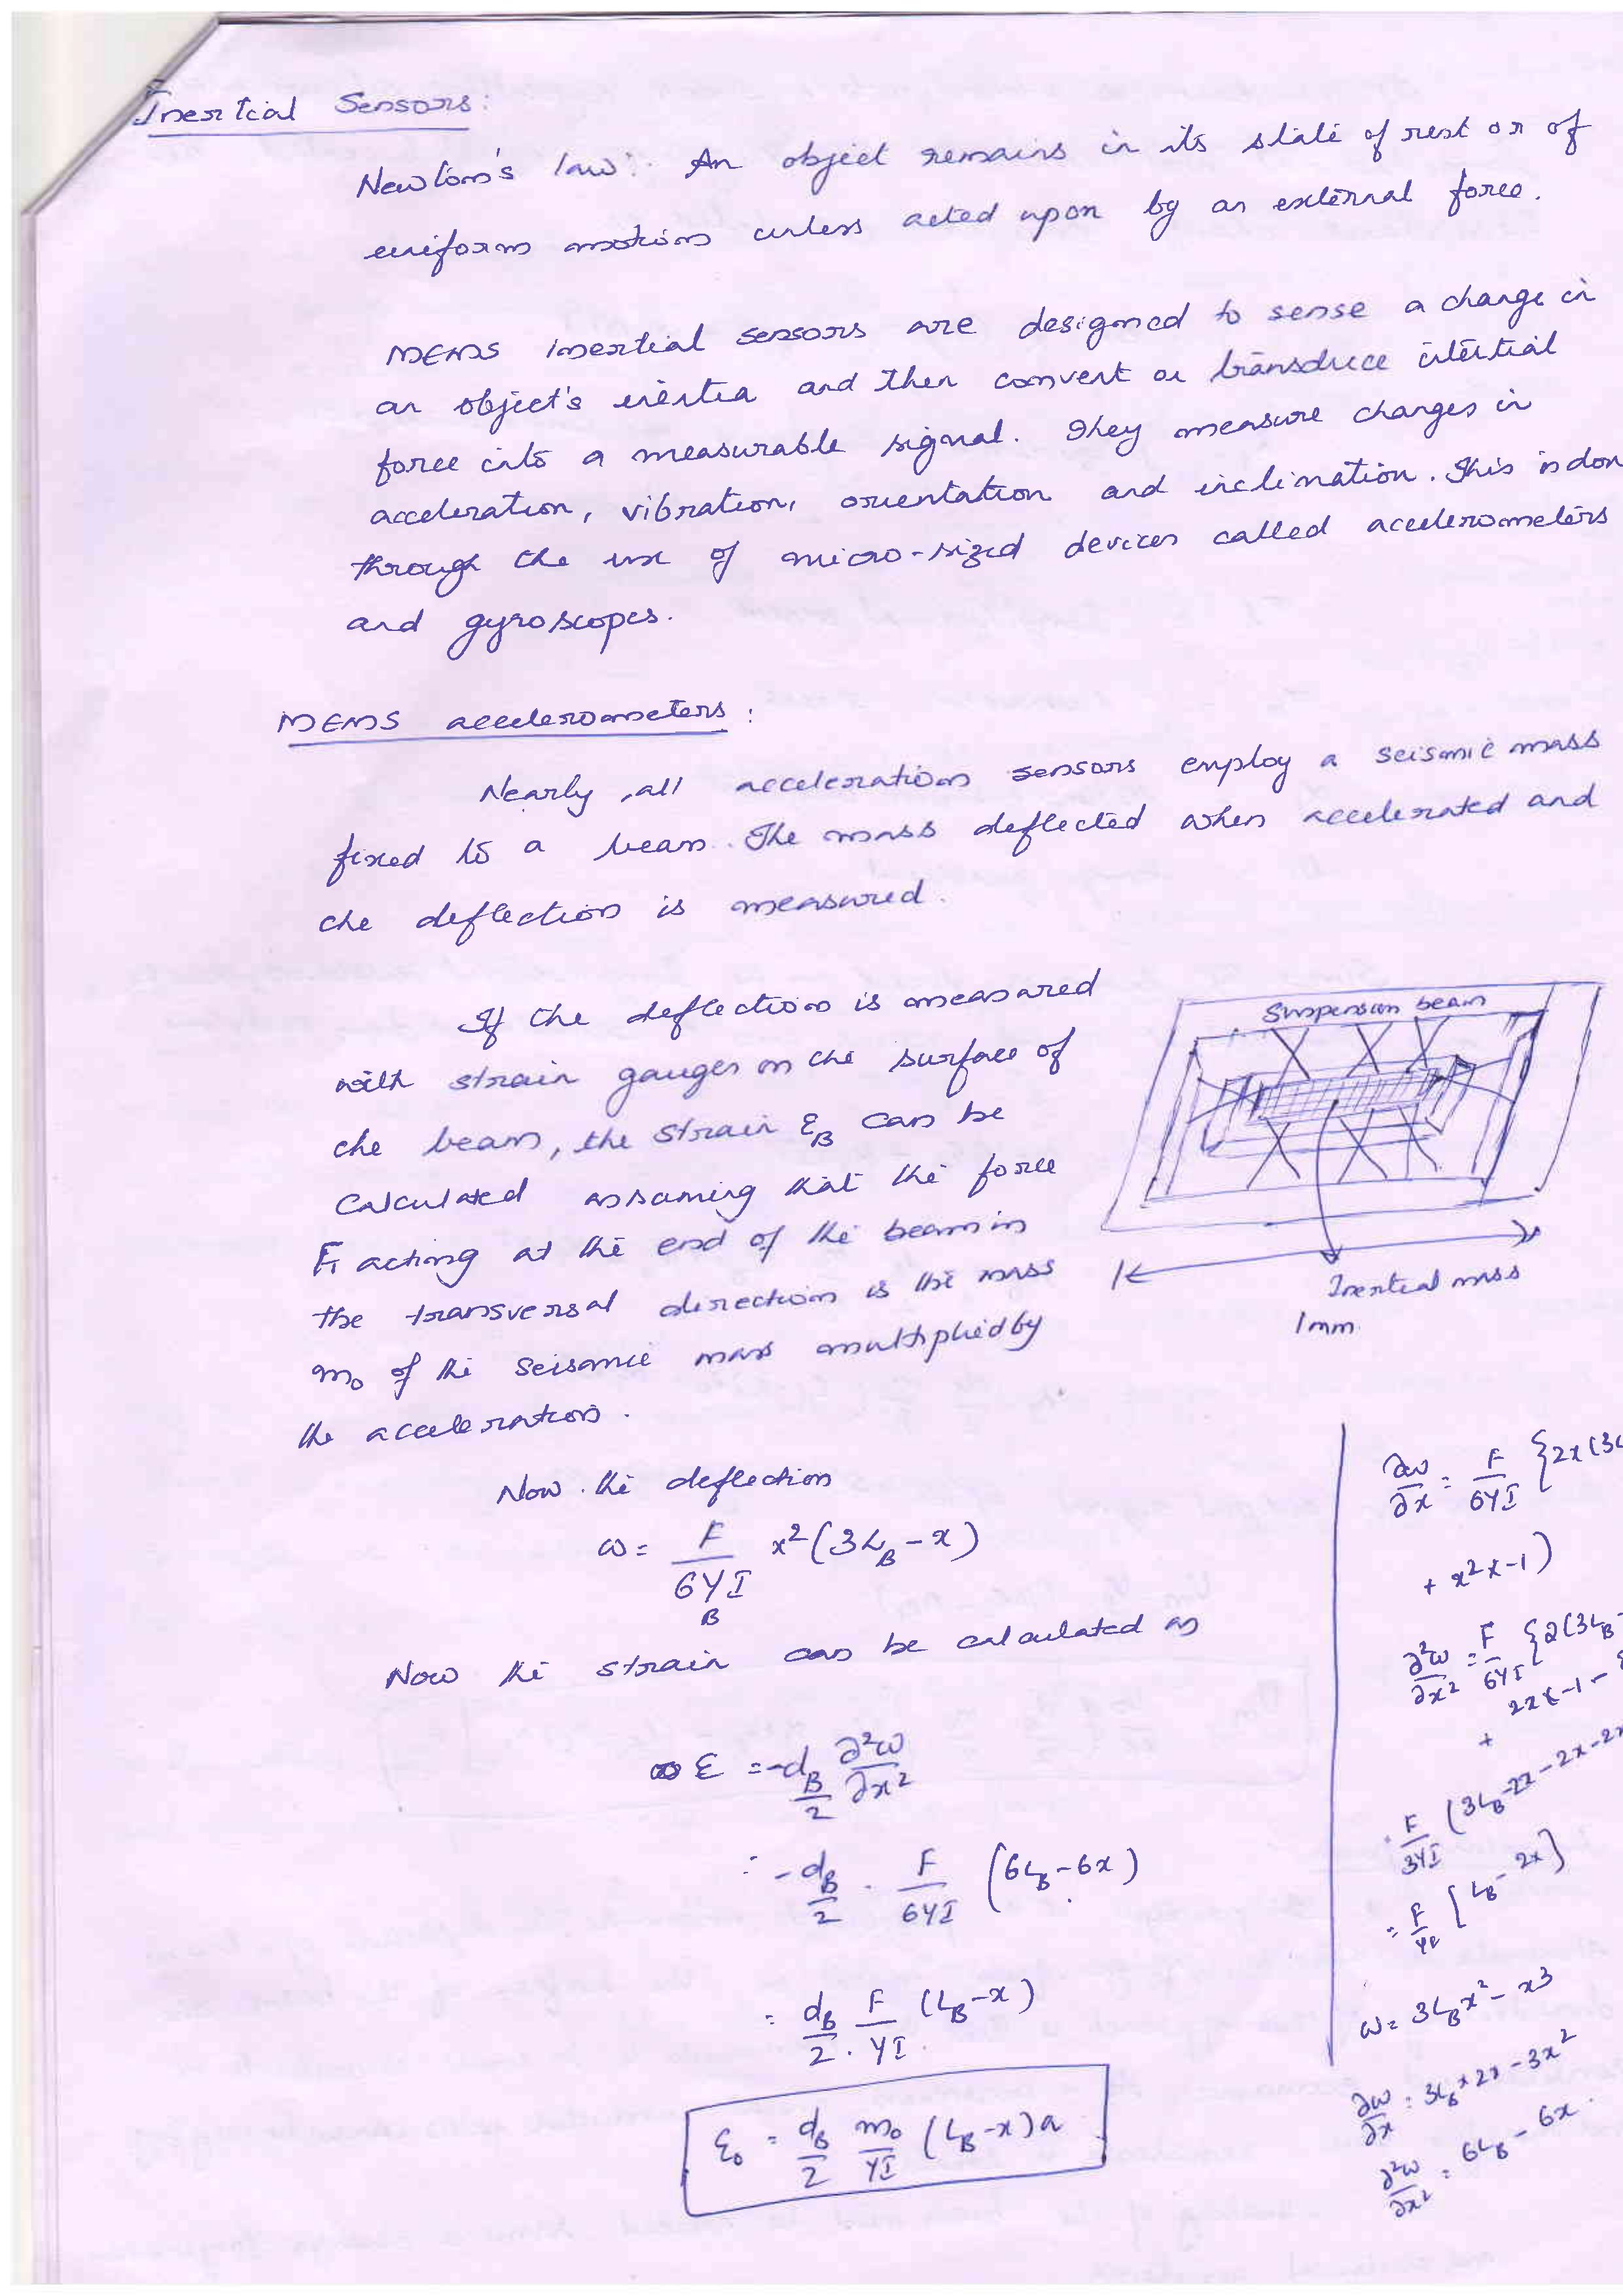 Inertial Sensors:
Newton's law: An object remains in its state of rest or of
uniform motion unless acted upon by an external force.
MEMS inertial sensors are designed to sense a change in
an object's inertia and then convert or transduce inertial
force into a measurable signal. They measure changes in
acceleration, vibration, orientation and inclination. This is don
through the use of micro-sized devices called accelerometers
and gyroscopes.
MEMS accelerometers:
Nearly all acceleration sensors employ a seismic mass
fixed to a beam. The mass deflected when accelerated and
the deflection is measured.
If the deflection is measured
with strain gauges on the surface of
the beam, the strain ε_B can be
calculated assuming that the force
F, acting at the end of the beam in
the transversal direction is the mass
m₀ of the seismic mass multiplied by
the acceleration.
Suspension beam
Inertial mass
1mm
Now the deflection
ω = F/(6Y_B I) x²(3L_B - x)
Now the strain can be calculated as
ε = -d_B/2 ∂²ω/∂x²
= -d_B/2 . F/(6YI) (6L_B - 6x)
= d_B/2 . F/(YI) (L_B - x)
ε₀ = d_B/2 m₀/(YI) (L_B - x)a
∂ω/∂x = F/(6YI) {2x(3L
+ x² x -1)
∂²ω/∂x² = F/(6YI) {2(3L_B -
2x x -1 -
+
F/(3YI) (3L_B - 2x - 2x - 2x
= F/ [L_B - 2x]
ω = 3L_B x² - x³
∂ω/∂x = 3L_B x 2x - 3x²
∂²ω/∂x² = 6L_B - 6x